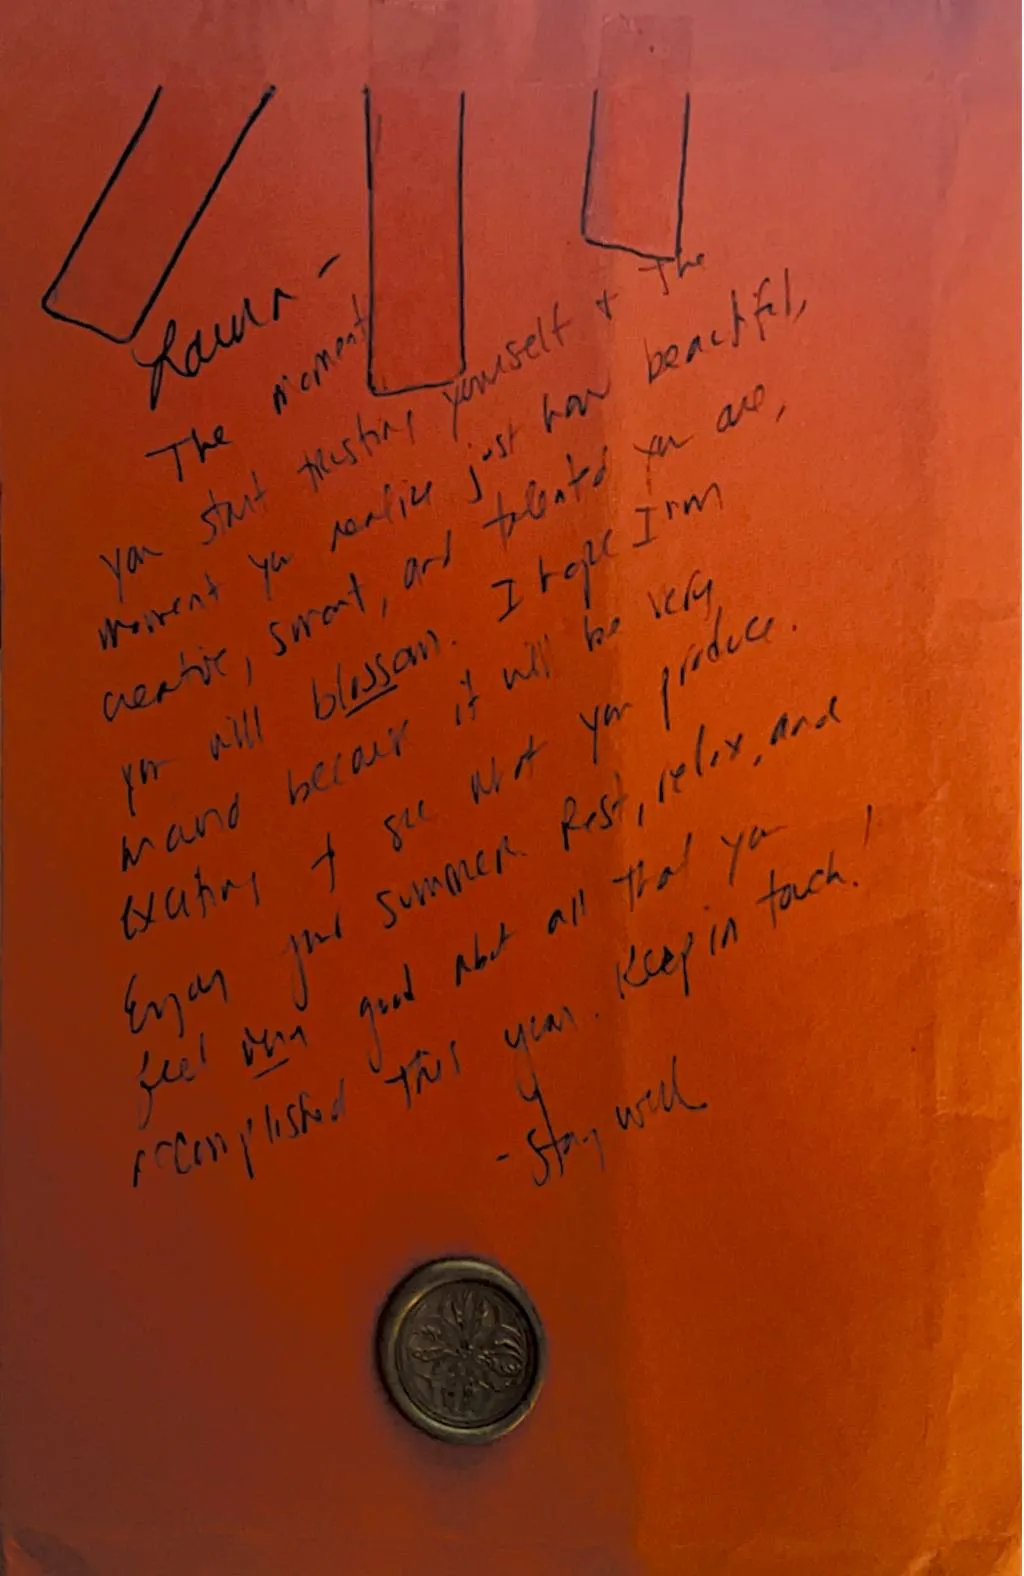 Laura -
The moment
you start trusting yourself + the
moment you realize just how beautiful,
creative, smart, and talented you are,
you will blossom. I hope I'm
around because it will be very
exciting to see what you produce.
Enjoy your summer. Rest, relax, and
feel very good about all that you
accomplished this year. Keep in touch!
- Stay well